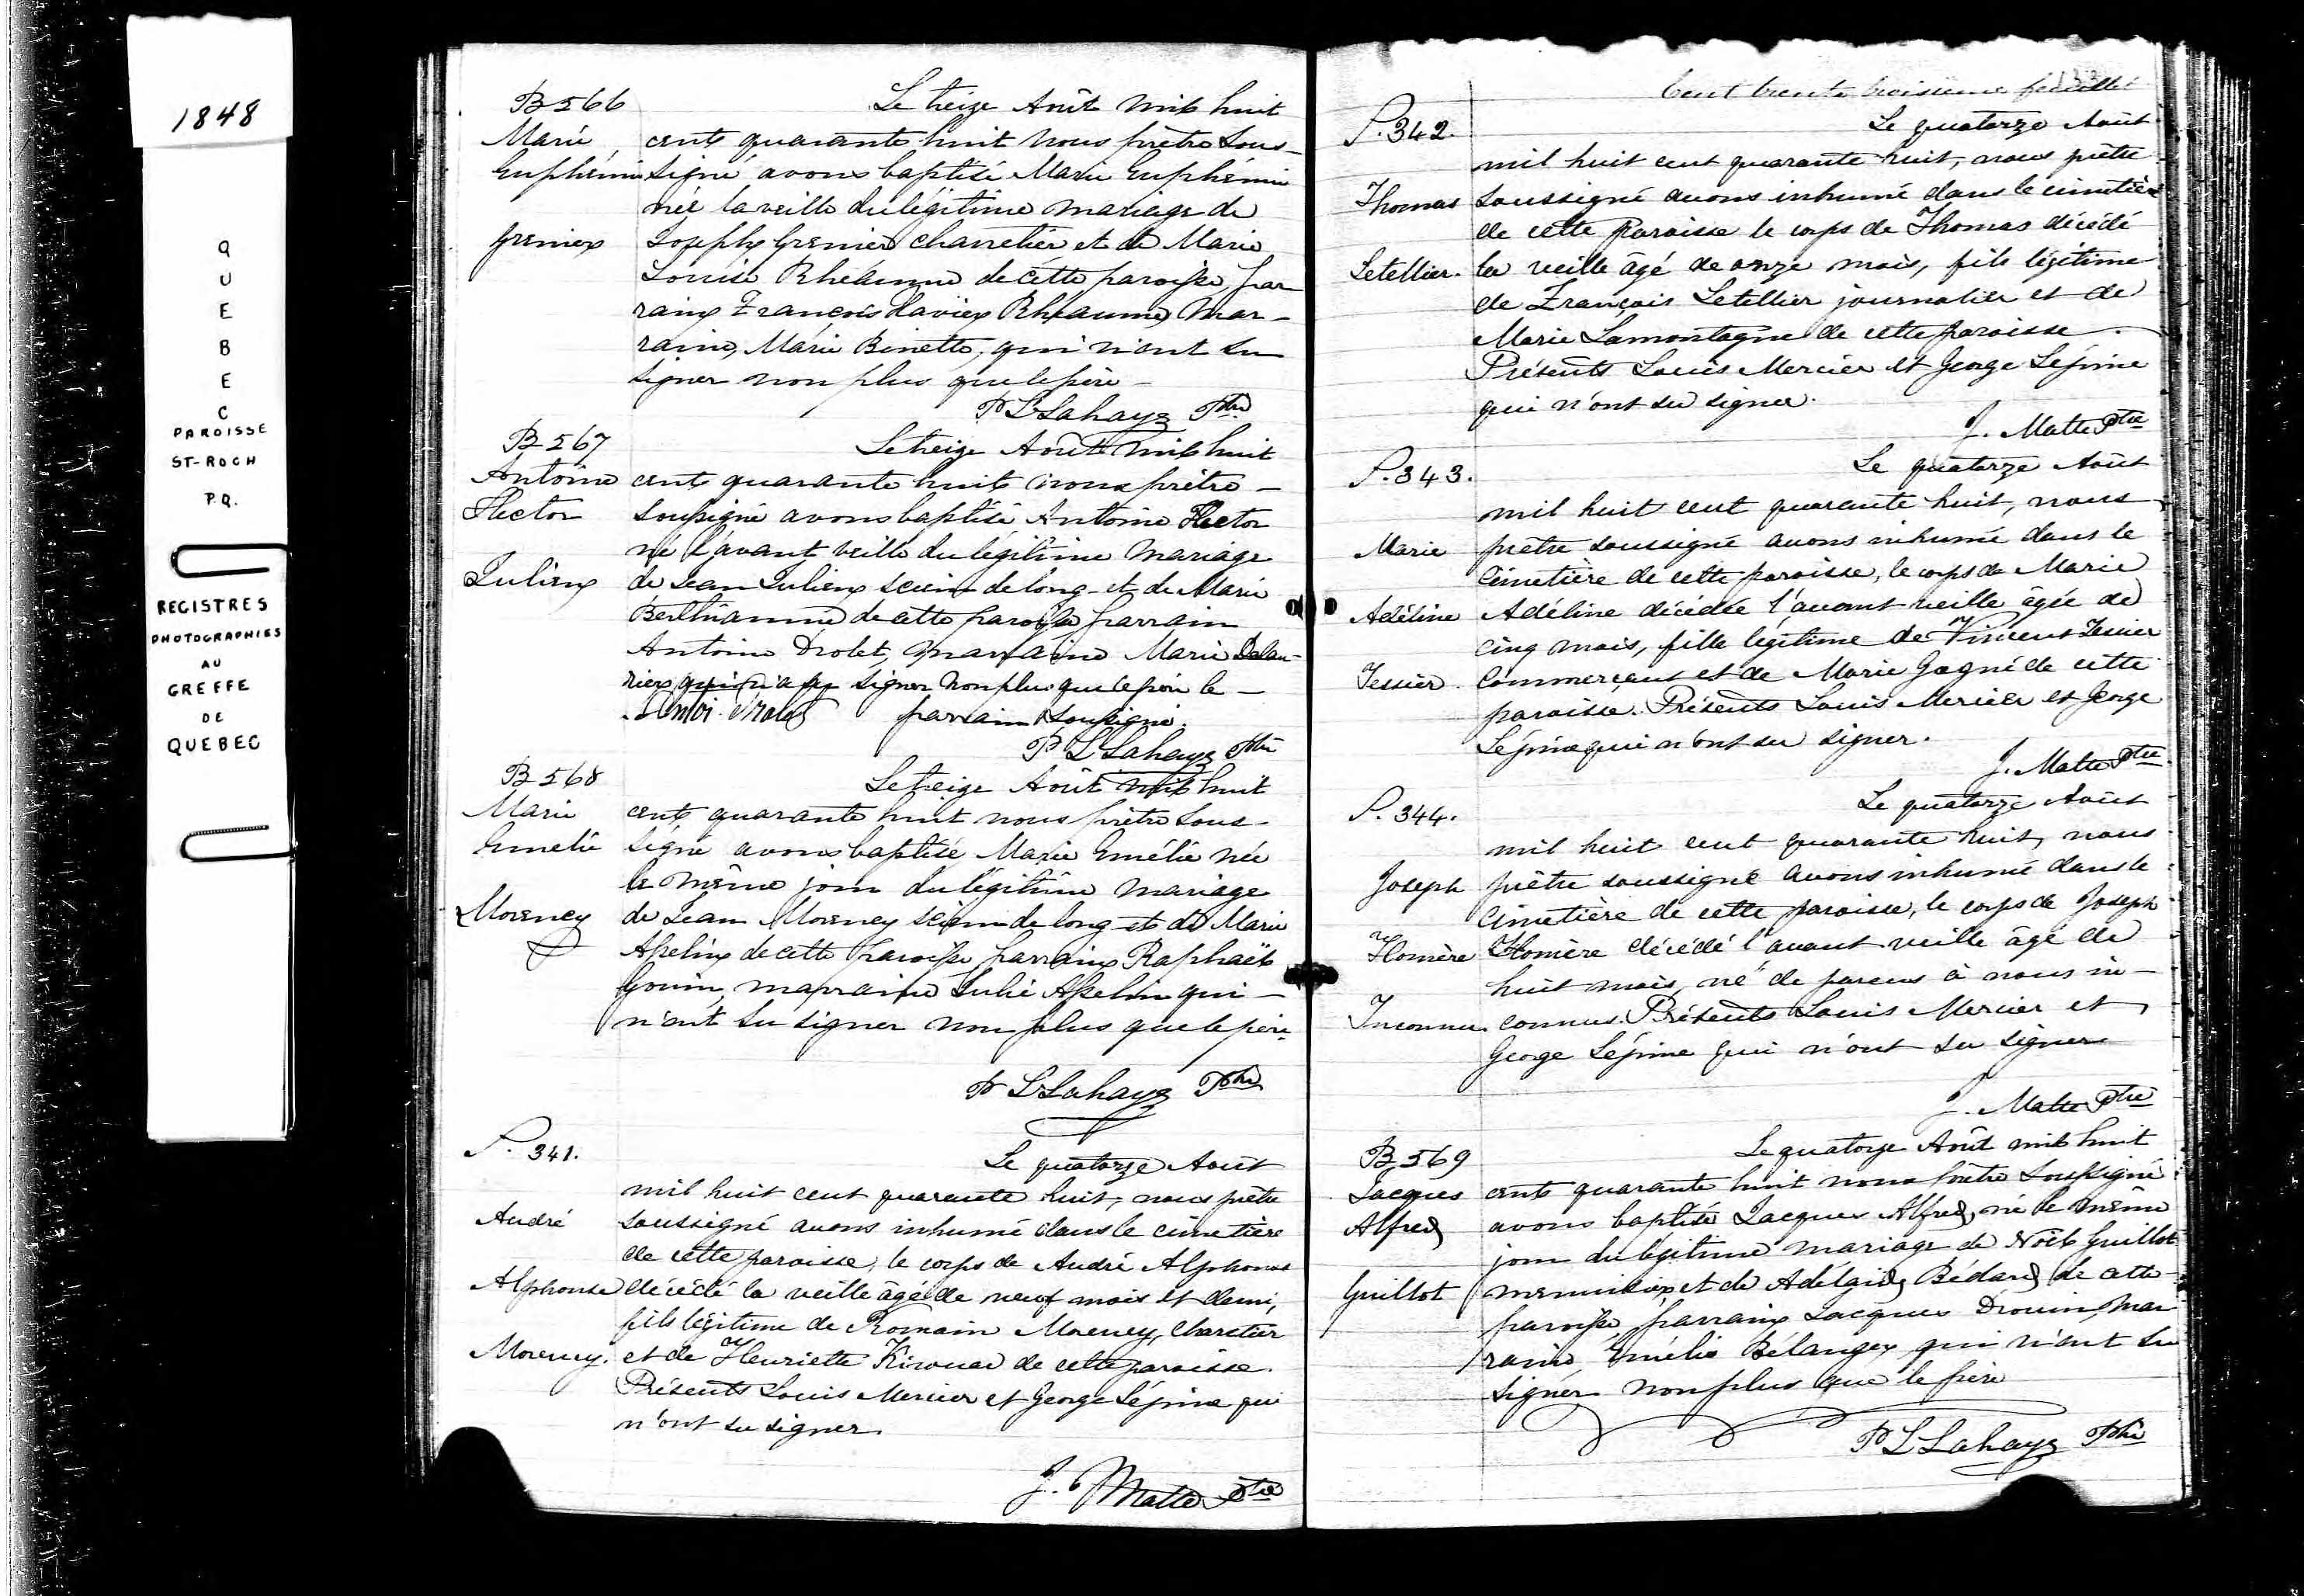 1848
Q
U
E
B
E
C
PAROISSE
ST-ROCH
P.Q.
REGISTRES
PHOTOGRAPHIES
AU
GREFFE
DE
QUEBEC
B 566
Marie
Euphémie
Grenier
Le treize Août mil huit
cent quarante huit nous prêtre sous-
signé avons baptisé Marie Euphémie
née la veille du légitime mariage de
Joseph Grenier charretier et de Marie
Louise Rhéaume de cette paroisse, par
rain François Xavier Rhéaume mar-
raine, Marie Binette, qui n'ont su
signer non plus que le père -
P L Lahaye Ptre
B 567
Antoine
Hector
Julien
Le treize Août mil huit
cent quarante huit nous prêtre -
soussigné avons baptisé Antoine Hector
né l'avant veille du légitime mariage
de Jean Julien scieur de long et de Marie
Berthiaume de cette paroisse parrain
Antoine Drolet, marraine Marie Delau-
rier qui n'a su signer non plus que le père le -
parrain soussigné.
P L Lahaye Ptre
B 568
Marie
Emélie
Morency
Le treize Août mil huit
cent quarante huit nous prêtre sous-
signé avons baptisé Marie Emélie née
le même jour du légitime mariage
de Jean Morency scieur de long et de Marie
Asselin de cette paroisse parrain Raphaël
Gouin, marraine Julie Asselin qui -
n'ont su signer non plus que le père
P L Lahaye Ptre
S. 341.
André
Alphonse
Morency.
Le quatorze Août
mil huit cent quarante huit, nous prêtre
soussigné avons inhumé dans le cimetière
de cette paroisse, le corps de André Alphonse
décédé la veille âgé de neuf mois et demi,
fils légitime de Romain Morency, charetier
et de Henriette Kirouac de cette paroisse.
Présents Louis Mercier et George Lépine qui
n'ont su signer.
J. Matte Ptre
133
Cent trente troisième feuillet
S. 342.
Thomas
Letellier.
Le quatorze Août
mil huit cent quarante huit, nous prêtre
soussigné avons inhumé dans le cimetière
de cette paroisse le corps de Thomas décédé
la veille âgé de onze mois, fils légitime
de François Letellier journalier et de
Marie Lamontagne de cette paroisse.
Présents Louis Mercier et George Lépine
qui n'ont su signer.
J. Matte Ptre
S. 343.
Marie
Adéline
Tessier
Le quatorze Août
mil huit cent quarante huit, nous
prêtre soussigné avons inhumé dans le
cimetière de cette paroisse, le corps de Marie
Adéline décédée l'avant veille âgée de
cinq mois, fille légitime de Vincent Tessier
commerçant et de Marie Gagné de cette
paroisse. Présents Louis Mercier et George
Lépine qui n'ont su signer.
J. Matte Ptre
S. 344.
Joseph
Homère
Inconnu
Le quatorze Août
mil huit cent quarante huit, nous
prêtre soussigné avons inhumé dans le
cimetière de cette paroisse, le corps de Joseph
Homère décédé l'avant veille âgé de
huit mois, né de parens à nous in-
connus. Présents Louis Mercier et
George Lépine qui n'ont su signer
J. Matte Ptre
B 569
Jacques
Alfred
Guillot
Le quatorze Août mil huit
cent quarante huit nous prêtre soussigné
avons baptisé Jacques Alfred, né le même
jour du légitime mariage de Noël Guillot
menuisier et de Adélaïde Bédard de cette
paroisse, parrain Jacques Drouin, mar
raine, Emélie Bélanger qui n'ont su
signer non plus que le père
P L Lahaye Ptre